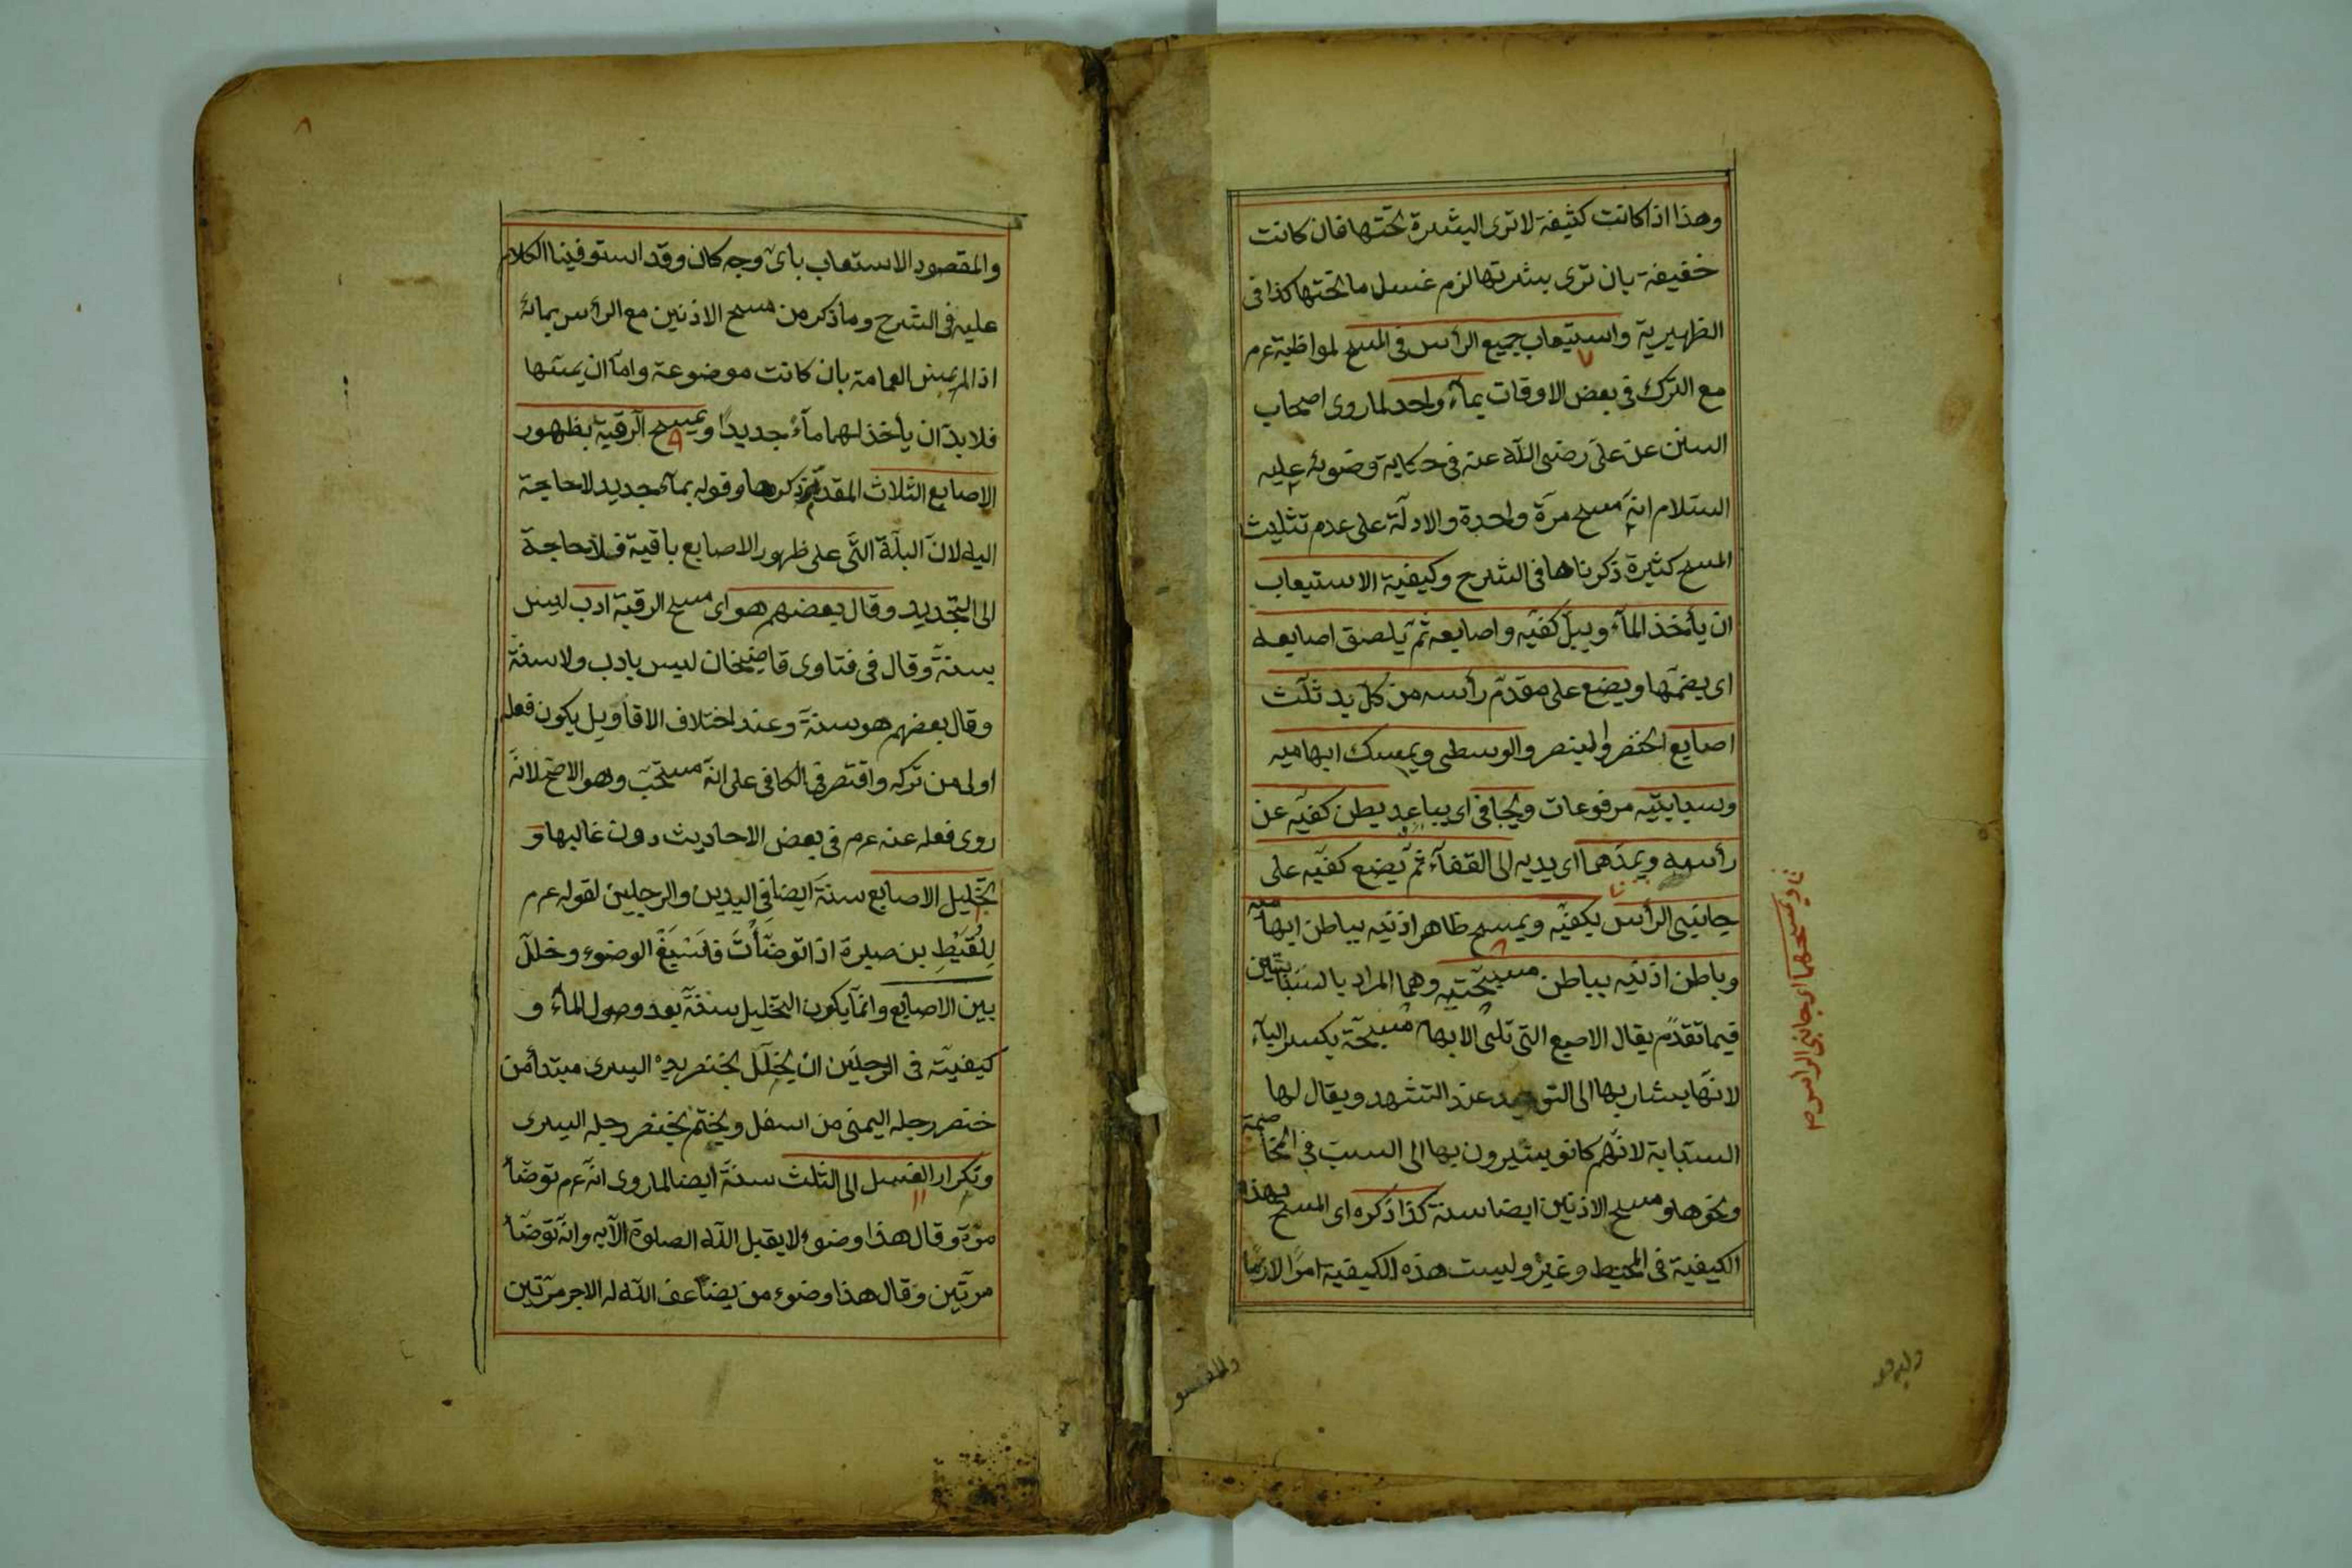 وهذا اذا كانت كثيفة لا ترى البشرة تحتها فان كانت
خفيفة بان ترى بشرتها لزم غسل ما تحتها كذا فى
الظهيرية واستيعاب جميع الرأس فى المسح لمواظبة عم
مع الترك فى بعض الاوقات بماء واحد لما روى اصحاب
السنن عن على رضى الله عنه فى حكاية وضوئه عليه
السلام انه مسح مرة واحدة والادلة على عدم تثليث
المسح كثيرة ذكرناها فى الشرح وكيفية الاستيعاب
ان يأخذ الماء ويبل كفيه واصابعه ثم يلصق اصابعه
اى يضمها ويضع على مقدم رأسه من كل يد ثلث
اصابع الخنصر والبنصر والوسطى ويمسك ابهاميه
وسبابتيه مرفوعات ويجافى اى يباعد بطن كفيه عن
رأسه ويمدهما اى يديه الى القفاء ثم يضع كفيه على
جانبى الرأس بكفيه ويمسح ظاهر اذنيه بباطن ابهاميه
وباطن اذنيه بباطن مسبحتيه وهما المراد بالسبابتين
فيما تقدم يقال الاصبع التى تلى الابهام مسبحة بكسر الباء
لانها يشار بها الى التوحيد عند التشهد ويقال لها
السبابة لانهم كانو يشيرون بها الى السب فى المخاصمة
ونحوها ومسح الاذنين ايضا سنة كذا ذكره اى المسح بهذه
الكيفية فى المحيط وغيره وليست هذه الكيفية امرا لازما
ويمسحهما اى جانبى الراس م
والمقصو
والمقصود الاستعاب باى وجه كان وقد استوفينا الكلام
عليه فى الشرح وما ذكر من مسح الاذنين مع الرأس بمائه
اذا لم يمس العمامة بان كانت موضوعة واما ان يمسها
فلا بد ان يأخذ لهما ماء جديدا ويمسح الرقبة بظهور
الاصابع الثلاث المقدم ذكرها وقوله بماء جديد لا حاجة
اليه لان البلة التى على ظهور الاصابع باقية فلا حاجة
الى التجديد وقال بعضهم هو اى مسح الرقبة ادب ليس
بسنة وقال فى فتاوى قاضيخان ليس بادب ولا سنة
وقال بعضهم هو سنة وعند اختلاف الاقاويل يكون فعله
اولى من تركه واقتصر فى الكافى على انه مستحب وهو الاصح لانه
روى فعله عنه عم فى بعض الاحاديث دون غالبها و
تخليل الاصابع سنة ايضا فى اليدين والرجلين لقوله عم
للقيط بن صبرة اذا توضأت فاسبغ الوضوء وخلل
بين الاصابع وانما يكون التخليل سنة بعد وصول الماء و
كيفيته فى الرجلين ان يخلل بخنصر يده اليسرى مبتدأ من
خنصر رجله اليمنى من اسفل ويختم بخنصر رجله اليسرى
وتكرار الغسل الى الثلث سنة ايضا لما روى انه عم توضأ
مرة وقال هذا وضوء لا يقبل الله الصلوة الا به وانه توضأ
مرتين وقال هذا وضوء من يضاعف الله له الاجر مرتين